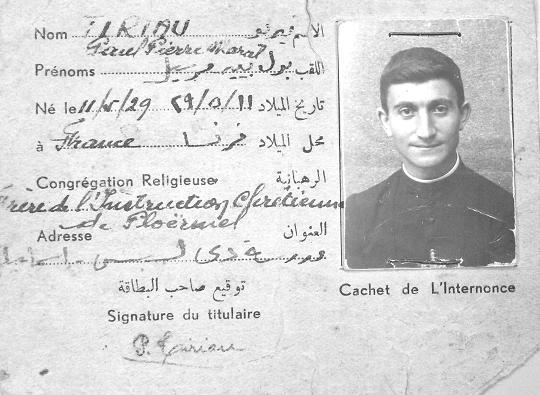 Nom TIRIAU الاسم تيريو
Paul Pierre Marat
Prénoms بول بيير اللقب
Né le 11/5/29 ٢٩/٥/١١ تاريخ الميلاد
à France فرنسا محل الميلاد
Congrégation Religieuse الرهبانية
Frere de l'Instruction Chrétienne
de Ploërmel
Adresse العنوان
توقيع صاحب البطاقة
Signature du titulaire
Cachet de L'Internonce
P. Tiriau